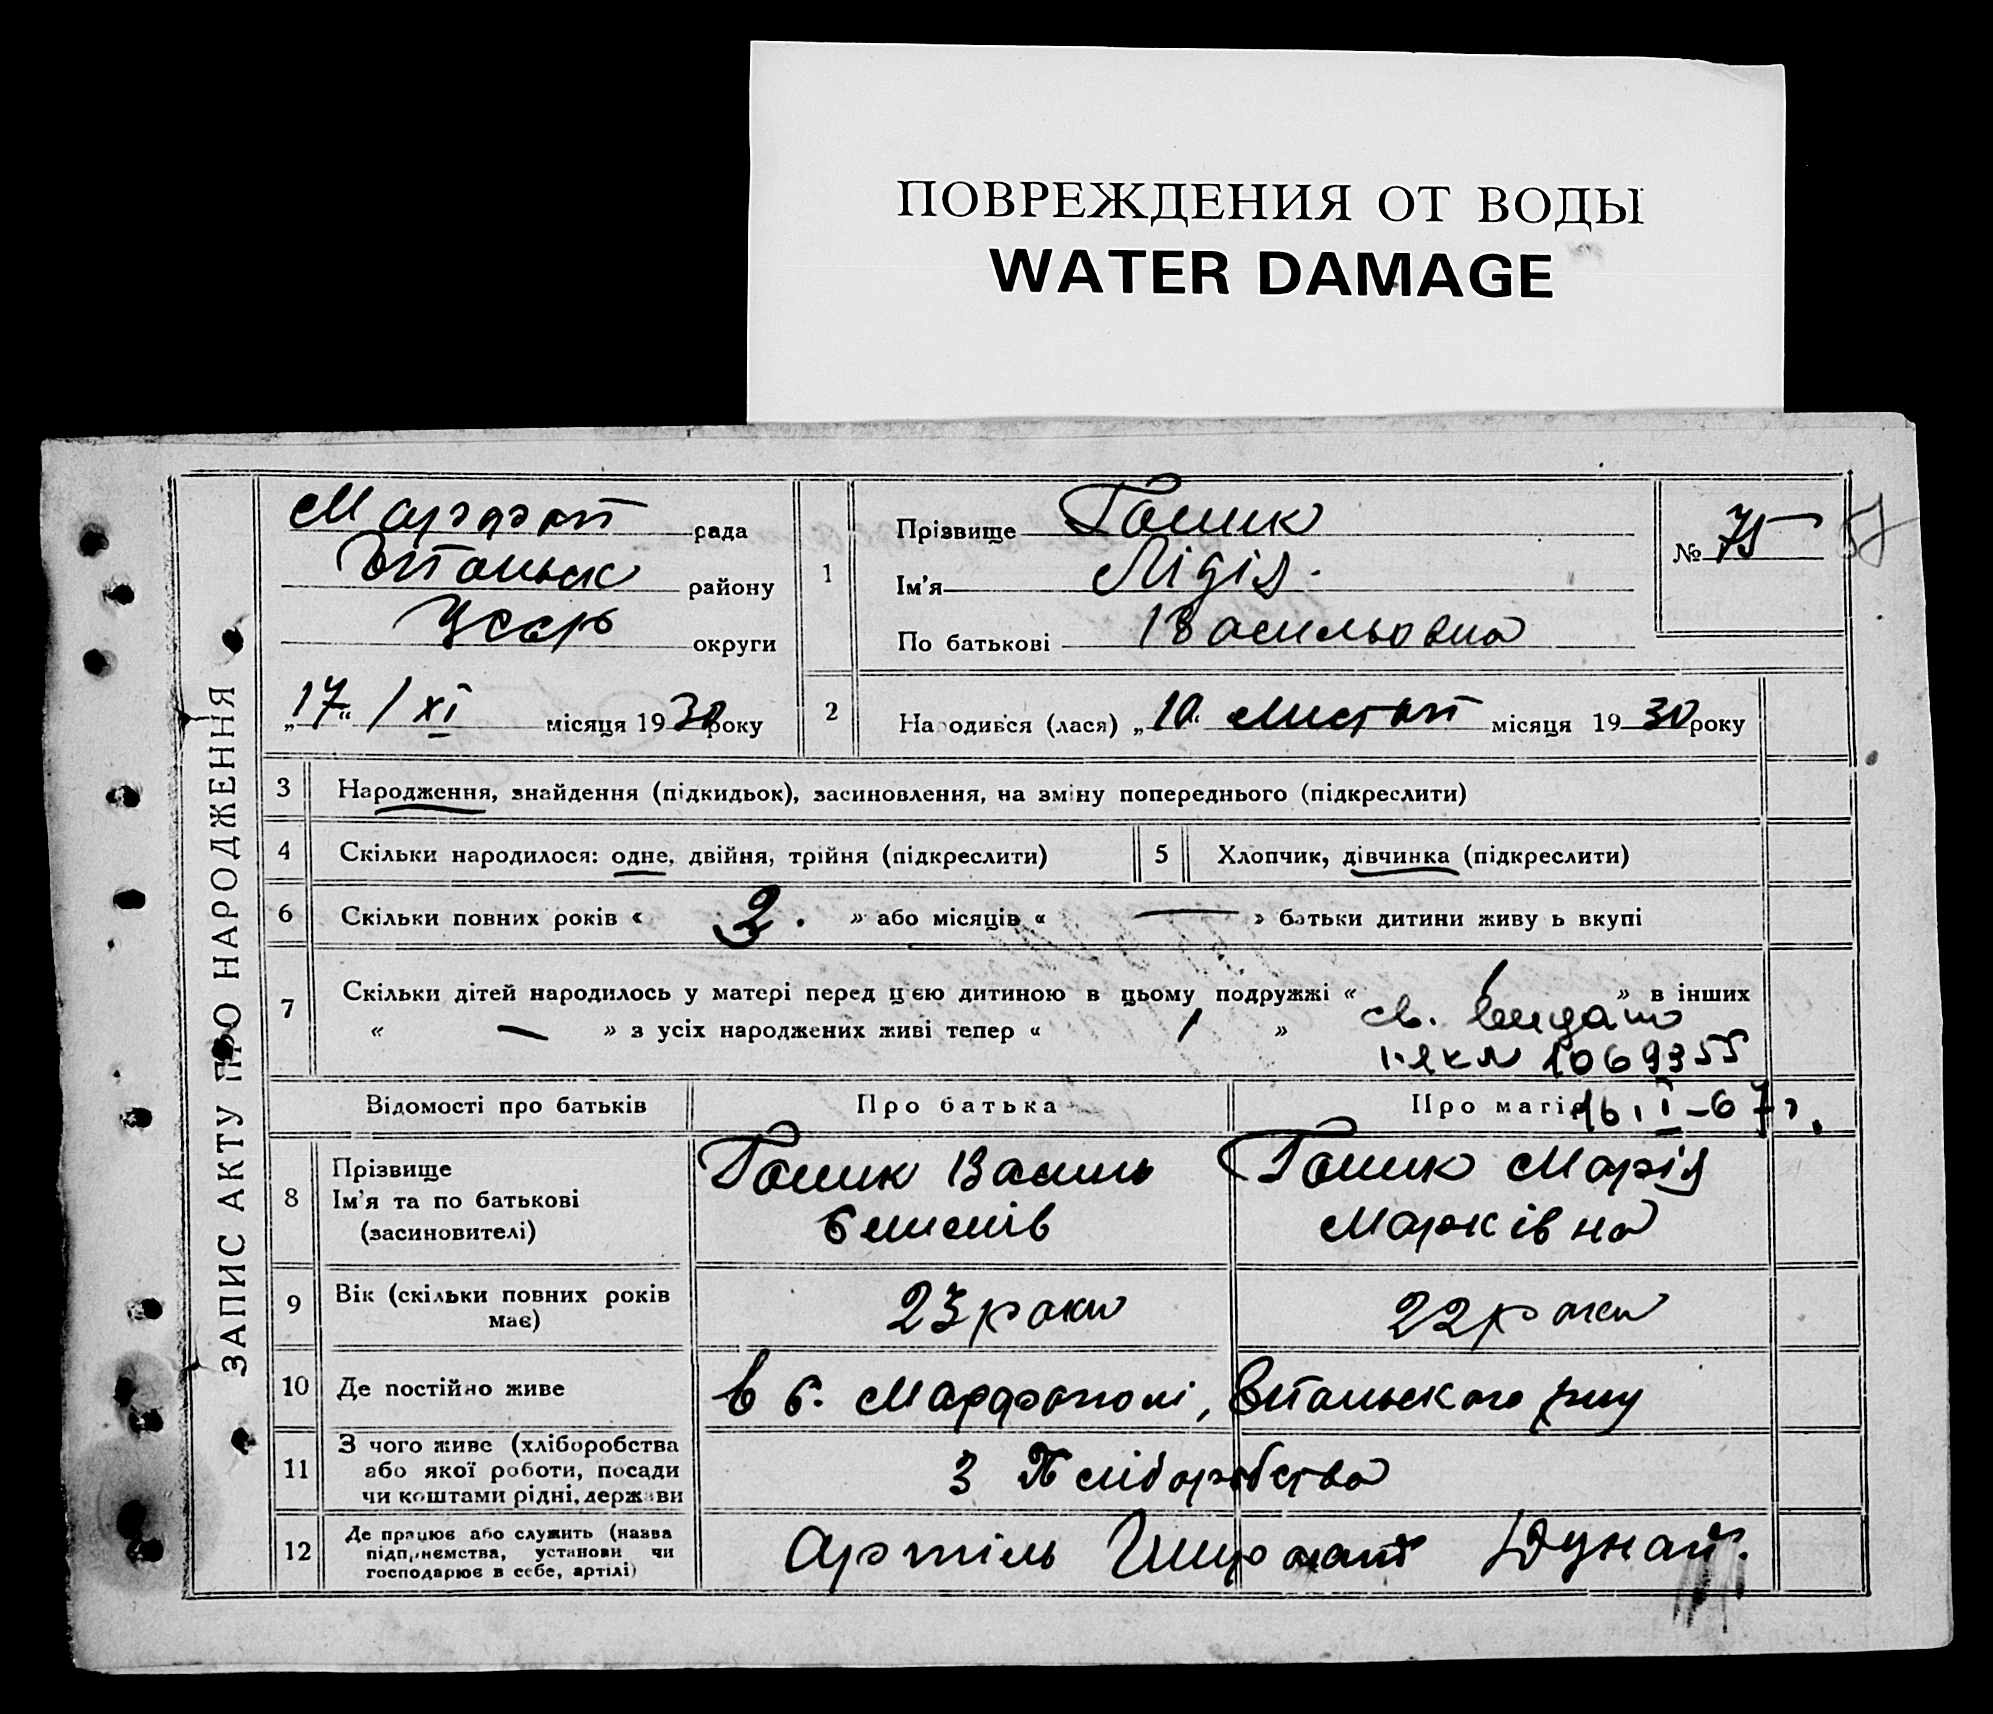 ПОВРЕЖДЕНИЯ ОТ ВОДЫ
WATER DAMAGE
ЗАПИС АКТУ ПРО НАРОДЖЕННЯ
рада
району
УССР округи
„17“ / XI місяця 1930 року
1
Прізвище Гошик
Ім'я Лідія.
По батькові Васильовна
№ 75
2
Народився (лася) „10“ листоп місяця 1930 року
3 Народження, знайдення (підкидьок), засиновлення, на зміну попереднього (підкреслити)
4 Скільки народилося: одне, двійня, трійня (підкреслити)
5 Хлопчик, дівчинка (підкреслити)
6 Скільки повних років « 2. » або місяців « — » батьки дитини живу ь вкупі
7 Скільки дітей народилось у матері перед цією дитиною в цьому подружжі « 1 » в інших
« — » з усіх народжених живі тепер « 1 »
св. видано
1069355
16 I-67г.
Відомості про батьків
Про батька
Про матір
8 Прізвище
Ім'я та по батькові
(засиновителі)
Гошик Василь
Гошик Марія
Марківна
9 Вік (скільки повних років
має)
23 роки
22 роки
10 Де постійно живе
в с. Марфополі,
11 З чого живе (хліборобства
або якої роботи, посади
чи коштами рідні, держави
З Хліборобства
12 Де працює або служить (назва
підприємства, установи чи
господарює в себе, артілі)
Артіль Дунай.